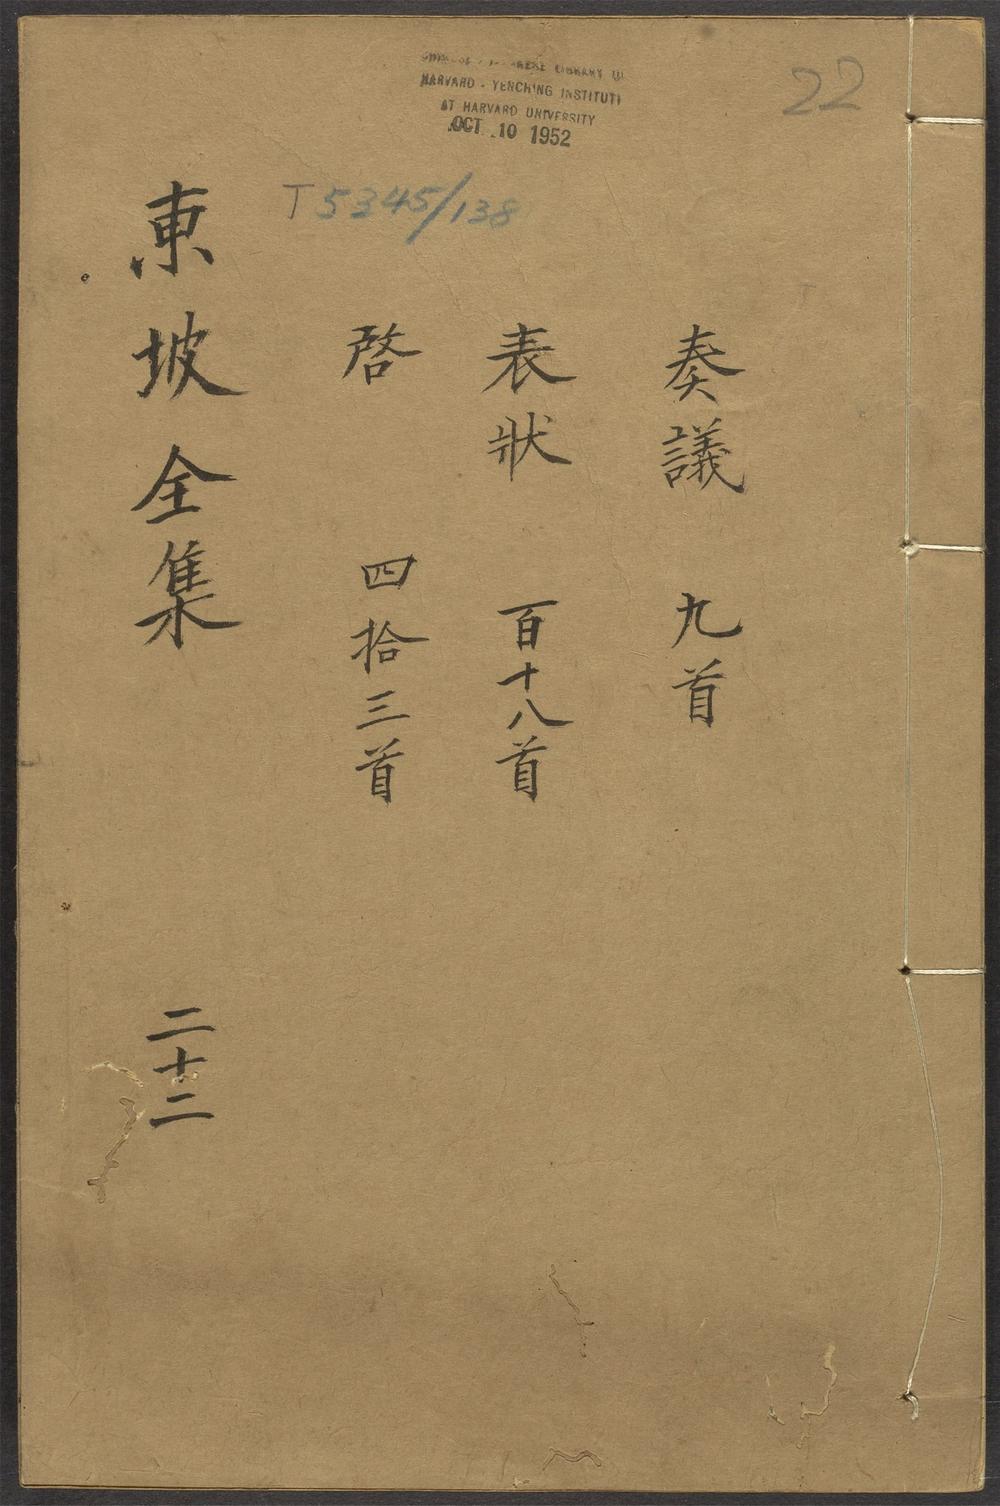 HARVARD - YENCHING INSTITUTI
AT HARVARD UNIVERSITY
OCT 10 1952
22
T5345/138
奏議 九首
表狀 百十八首
啓 四拾三首
東坡全集 二十二